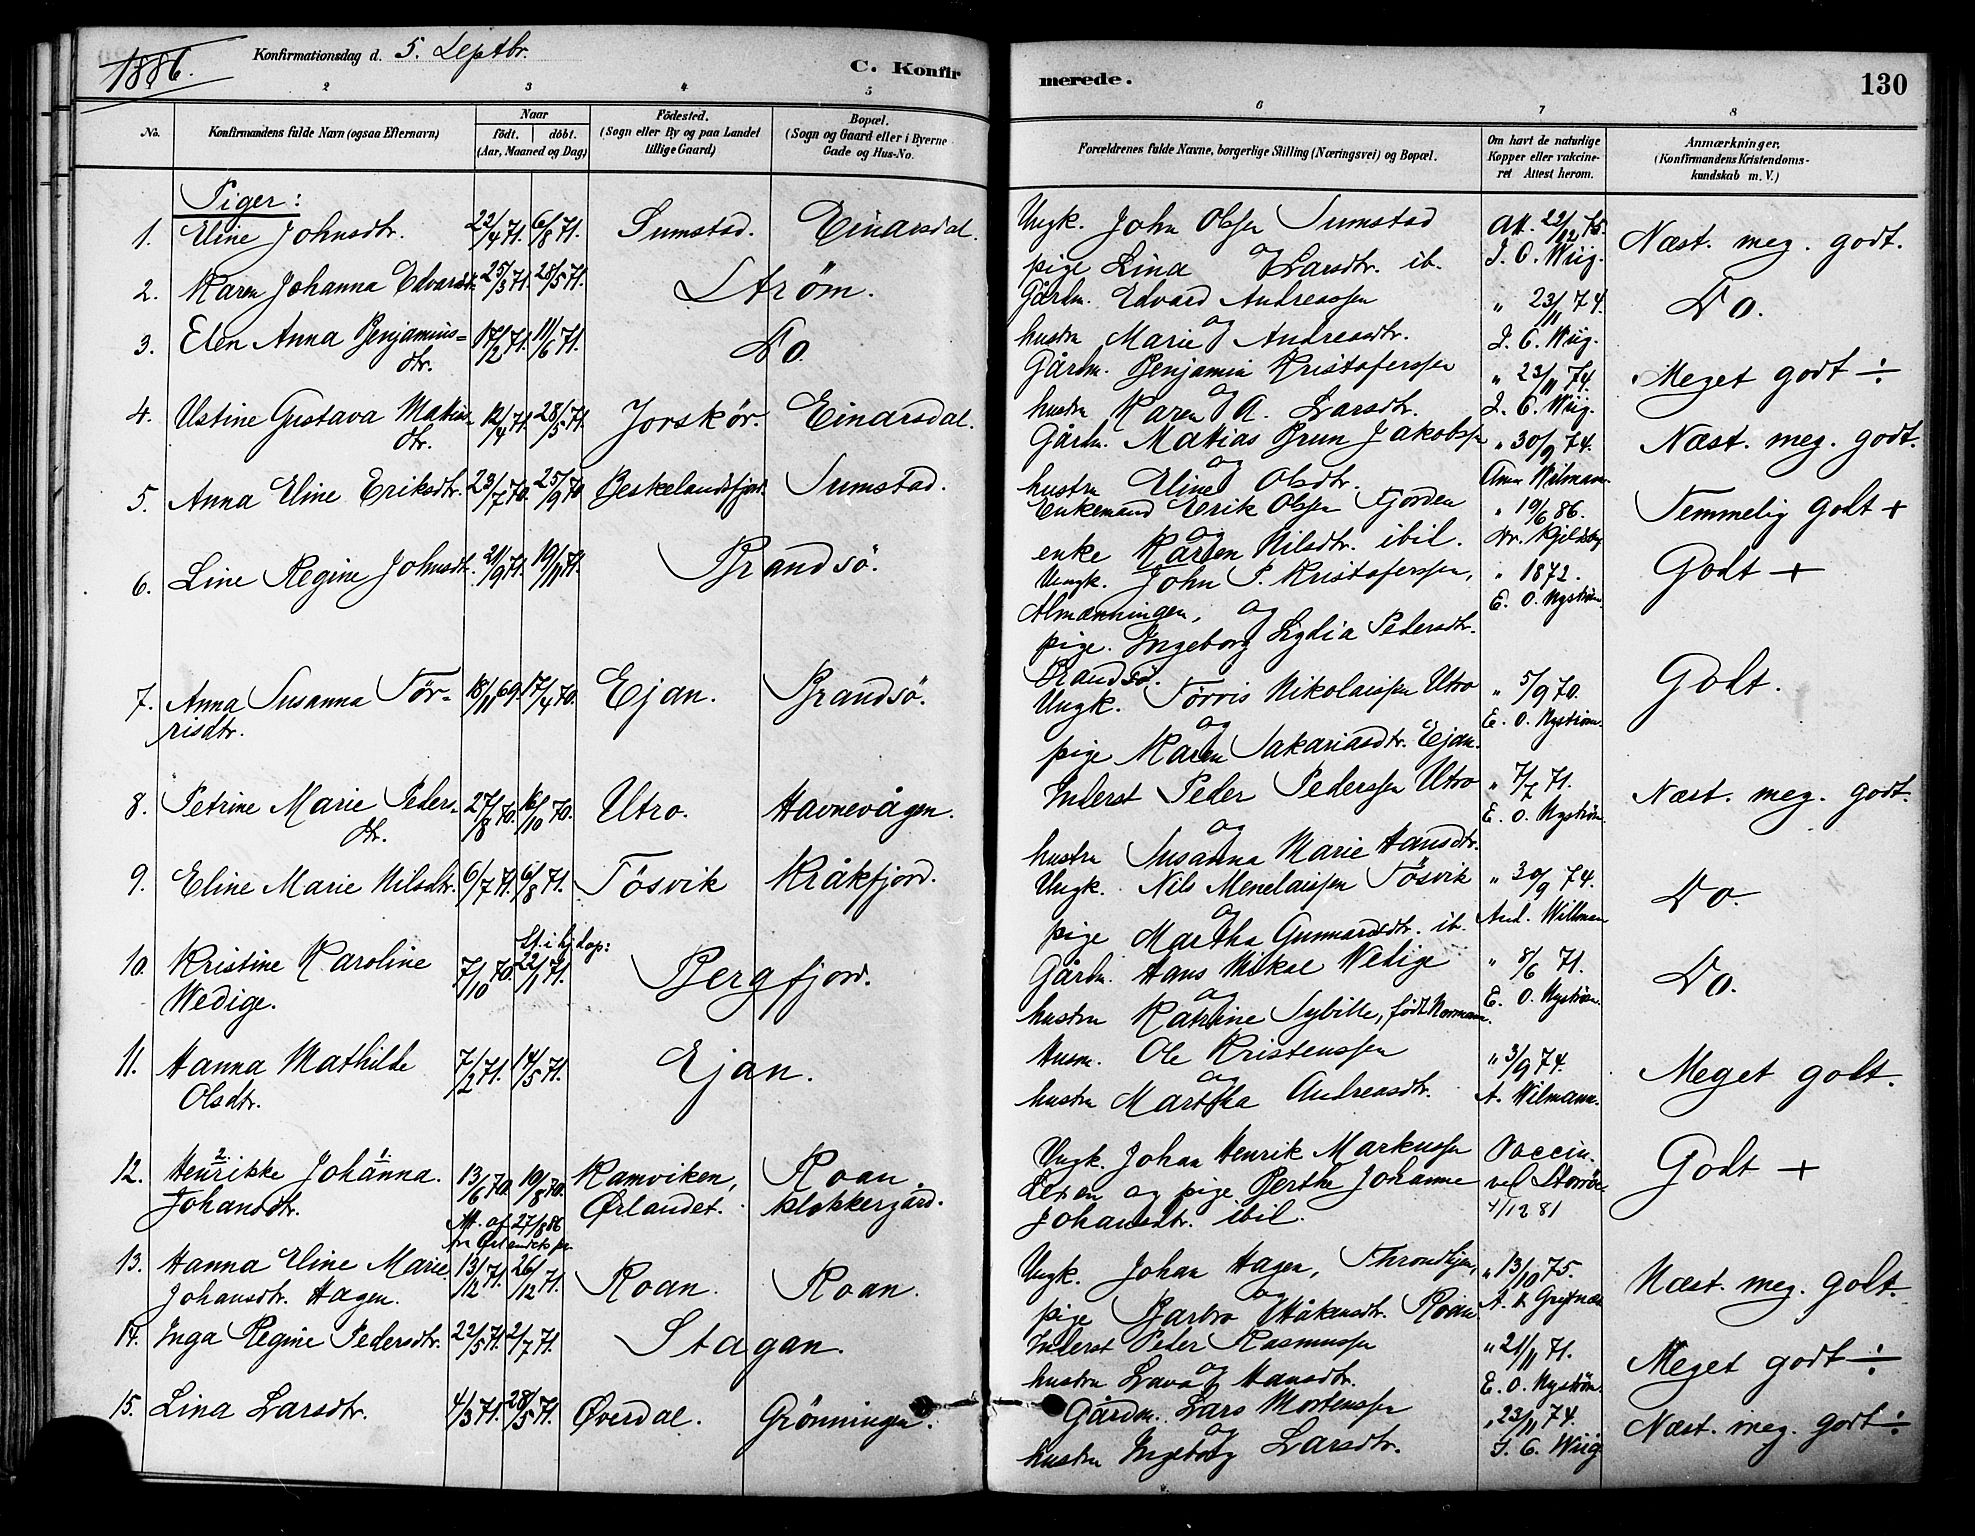 1886.
Konfirmationsdag d. 5. Septbr.
C. Konfirmerede.
130
2 3 4 5 6 7 8
No.
Konfirmandens fulde Navn (ogsaa Efternavn)
Naar
født. døbt.
(Aar, Maaned og Dag)
Fødested.
(Sogn eller By og paa Landet
tillige Gaard)
Bopæl.
(Sogn og Gaard eller i Byerne
Gade og Hus-No.
Forældrenes fulde Navne, borgerlige Stilling (Næringsvei) og Bopæl.
Om havt de naturlige
Kopper eller vakcine-
ret Attest herom.
Anmærkninger.
(Konfirmandens Kristendoms-
kundskab m. V.)
Piger:
1. Eline Johnsdtr. 22/4 71. 6/8 71. Sumstad. Einarsdal.
Ungk. John Olsen Sumstad
og
pige Lina Larsdtr. ib.
Att. 22/12 75.
J. C. Wiig.
Næst. meg. godt.
2. Karen Johanna Edvardsdtr. 25/3 71. 28/5 71. Strøm.
Gårdm. Edvard Andreassen
og
hustru Marie Andreasdtr.
" 23/11 74.
J. C. Wiig.
Do.
3. Elen Anna Benjamins=
dtr. 17/2 71. 11/6 71. Do.
Gårdm. Benjamin Kristofersen
og
hustru Karen A. Larsdtr.
" 23/11 74.
J. C. Wiig.
Meget godt ÷
4. Ustine Gustava Matias
dtr. 12/4 71. 28/5 71. Jorskør. Einarsdal.
Gårdm. Matias Brun Jakobsen
og
hustru Eline Olsdtr.
" 30/9 74.
Næst. meg. godt.
5. Anna Eline Eriksdtr. 23/7 70. 25/9 70. Beskelandsfjord. Sumstad.
Enkemand Erik Olsen Fjorden
og
enke Karen Nilsdtr. ibid.
" 19/6 86.
Temmelig godt +
6. Line Regine Johnsdt. 21/9 71. 19/11 71. Brandsø.
Ungk. John P. Kristofersen,
Almenningen, og
pige. Ingeborg Lydia Pedersdtr.
Brandsø.
" 1872.
E. O. Nystrøm.
Godt +
7. Anna Susanna Tør-
risdtr. 18/11 69. 17/4 70. Ejan. Brandsø.
Ungk. Tørris Nikolaissen Utro
og
pige Karen Sakariasdtr. Ejan.
" 5/9 70.
E. O. Nystrøm.
Godt.
8. Petrine Marie Peders-
dtr. 27/8 70. 16/10 70. Utro. Havnevågen.
Inderst Peder Pedersen Utro
og
hustru Susanna Marie Hansdtr.
" 7/7 71.
E. O. Nystrøm.
Næst. meg. godt.
9. Eline Marie Nilsdtr. 6/7 71. 6/8 71. Tøsvik Kråkfjord.
Ungk. Nils Menelaissen Tøsvik
og
pige Martha Gunnarsdtr. ib.
" 30/9 74.
And. Willman
Do.
10. Kristine Karoline
Wedige. 7/10 70. St. i hj. dop: 22/1 71. Bergfjord.
Gårdm. Hans Mikal Wedige
og
hustru Katrine Sybille, født Normann.
" 8/6 71.
E. O. Nystrøm.
Do.
11. Hanna Mathilde
Olsdtr. 7/2 71. 14/5 71. Ejan.
Husm. Ole Kristensen
og
hustru Martha Andreasdtr.
" 3/9 74.
A. Wilmann.
Meget godt.
12. Henrikke Johanna.
Johansdtr. 13/6 70. 19/8 70. Ramviken,
Ørlandet. Roan.
klokkergård.
Att. af 27/8 86
fra Ørlandets pr.
Ungk. Johan Henrik Markussen
og pige. Berthe Johanne
Johansdtr. ibid.
Vaccin.
ved Storrøe
4/12 81
Godt +
13. Hanna Eline Marie
Johansdtr. Hagen. 13/12 71. 26/12 71. Roan. Roan.
Ungk. Johan Hagen, Throndhjem,
og
pige Barbro Håkensdtr. Roan
" 13/10 75.
Næst. meg. godt.
14. Inga Regine Pedersdtr. 22/5 71. 2/7 71. Stagan.
Inderst Peder Rasmussen
og
hustru Lava Hansdtr.
" 21/11 71.
E. O. Nystrøm.
Meget godt ÷
15. Lina Larsdtr. 4/3 71. 28/5 71. Øverdal. Grønningen.
Gårdm. Lars Mortensen
og
hustru Ingeborg Larsdtr.
" 23/11 74.
J. C. Wiig
Næst. meg. godt ÷